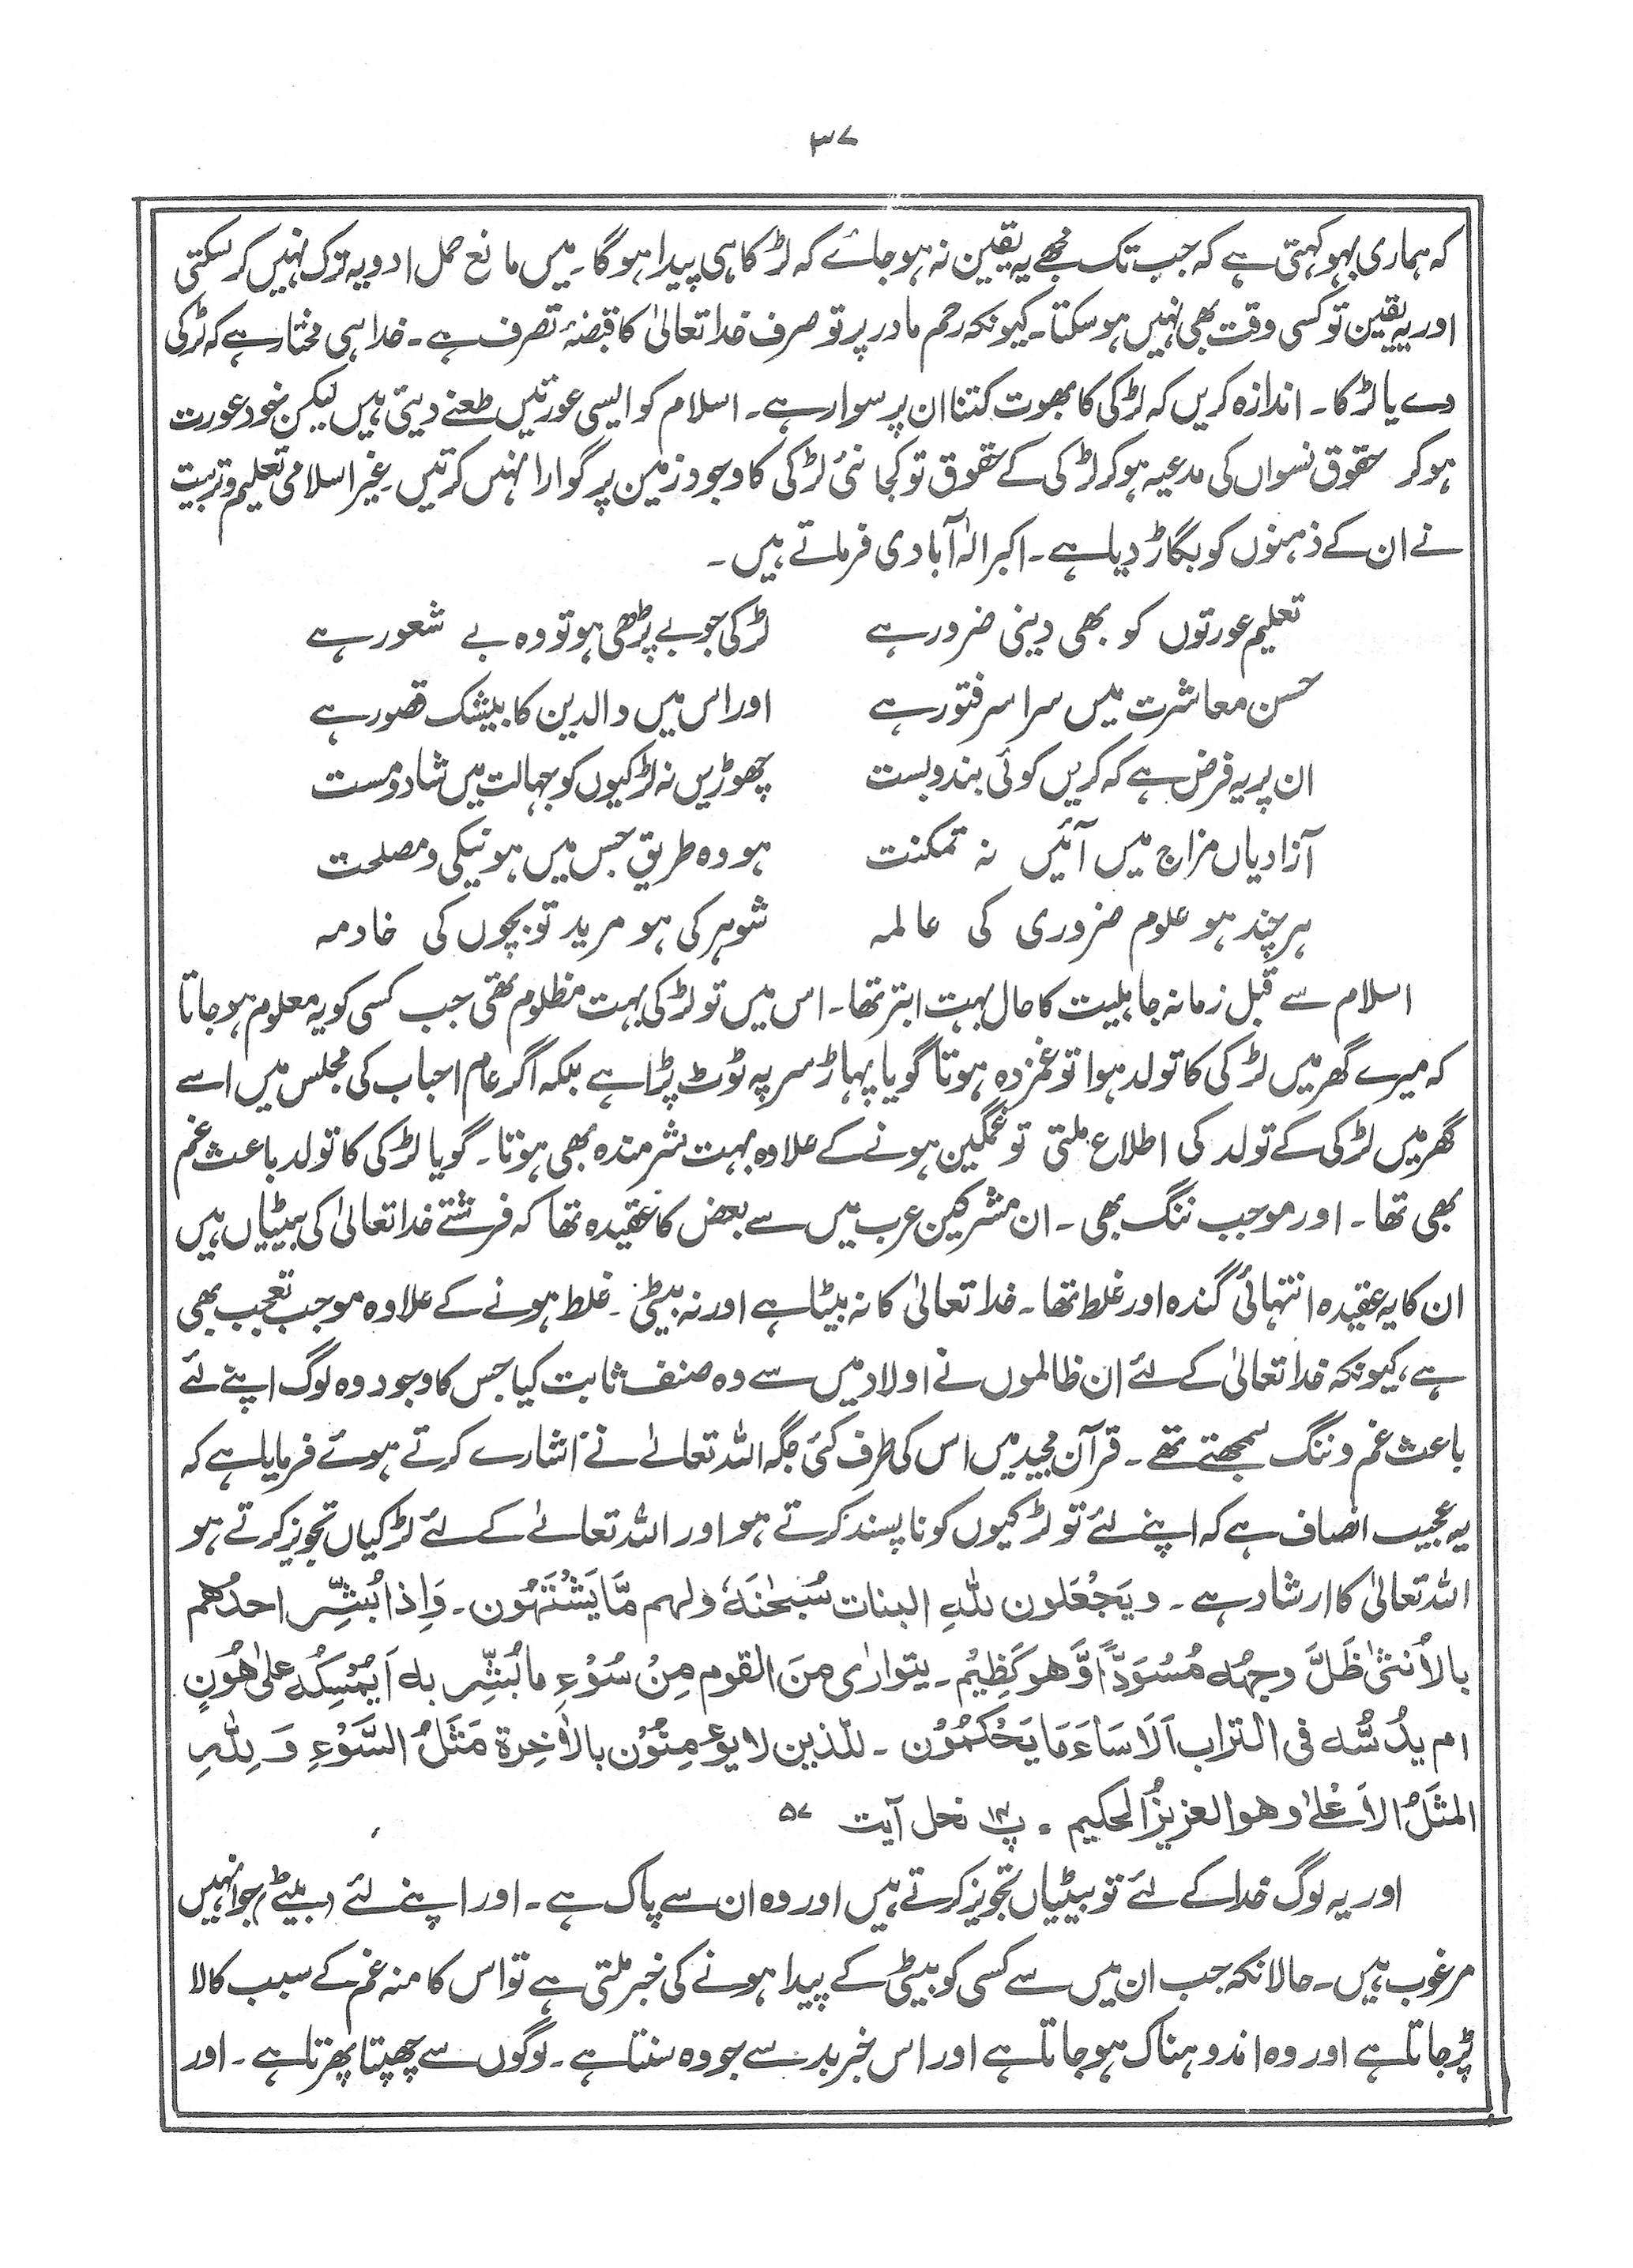 ۳۷
کہ ہماری بہو کہتی ہے کہ جب تک مجھے یہ یقین نہ ہو جائے کہ لڑکا ہی پیدا ہو گا۔ میں مانع حمل ادویہ ترک نہیں کر سکتی
اور یہ یقین تو کسی وقت بھی نہیں ہو سکتا۔ کیونکہ رحم مادر پر تو صرف خدا تعالیٰ کا قبضۂ تصرف ہے۔ خدا ہی مختار ہے کہ لڑکی
دے یا لڑکا۔ اندازہ کریں کہ لڑکی کا بھوت کتنا ان پر سوار ہے۔ اسلام کو ایسی عورتیں طعنے دیتی ہیں لیکن خود عورت
ہو کر حقوق نسواں کی مدعیہ ہو کر لڑکی کے حقوق تو کجا نئی لڑکی کا وجود زمین پر گوارا نہیں کرتیں۔ غیر اسلامی تعلیم و تربیت
نے ان کے ذہنوں کو بگاڑ دیا ہے۔ اکبر الٰہ آبادی فرماتے ہیں۔
تعلیم عورتوں کو بھی دینی ضرور ہے لڑکی جو بے پڑھی ہو تو وہ بے شعور ہے
حسن معاشرت میں سراسر فتور ہے اور اس میں والدین کا بیشک قصور ہے
ان پر یہ فرض ہے کہ کریں کوئی بندوبست چھوڑیں نہ لڑکیوں کو جہالت میں شاد و مست
آزادیاں مزاج میں آئیں نہ تمکنت ہو وہ طریق جس میں ہو نیکی و مصلحت
ہر چند ہو علوم ضروری کی عالمہ شوہر کی ہو مرید تو بچوں کی خادمہ
اسلام سے قبل زمانہ جاہلیت کا حال بہت ابتر تھا۔ اس میں تو لڑکی بہت مظلوم تھی جب کسی کو یہ معلوم ہو جاتا
کہ میرے گھر میں لڑکی کا تولد ہوا تو غمزدہ ہوتا گویا پہاڑ سر پہ ٹوٹ پڑا ہے بلکہ اگر عام احباب کی مجلس میں اسے
گھر میں لڑکی کے تولد کی اطلاع ملتی تو غمگین ہونے کے علاوہ بہت شرمندہ بھی ہوتا۔ گویا لڑکی کا تولد باعث غم
بھی تھا۔ اور موجب ننگ بھی۔ ان مشرکین عرب میں سے بعض کا عقیدہ تھا کہ فرشتے خدا تعالیٰ کی بیٹیاں ہیں
ان کا یہ عقیدہ انتہائی گندہ اور غلط تھا۔ خدا تعالیٰ کا نہ بیٹا ہے اور نہ بیٹی۔ غلط ہونے کے علاوہ موجب تعجب بھی
ہے، کیونکہ خدا تعالیٰ کے لئے ان ظالموں نے اولاد میں سے وہ صنف ثابت کیا جس کا وجود وہ لوگ اپنے لئے
باعث غم و ننگ سمجھتے تھے۔ قرآن مجید میں اس کی طرف کئی جگہ اللہ تعالےٰ نے اشارے کرتے ہوئے فرمایا ہے کہ
یہ عجیب انصاف ہے کہ اپنے لئے تو لڑکیوں کو ناپسند کرتے ہو اور اللہ تعالےٰ کے لئے لڑکیاں تجویز کرتے ہو
اللہ تعالیٰ کا ارشاد ہے۔ ویَجْعَلون للهِ البنات سُبْحٰنَهٗ ولہم مَّا یَشْتَہُون۔ وَاِذا بُشِّر احدُھم
بالأُنثیٰ ظَلَّ وجہُہ مُسْوَدًّا وَّھو کَظِیْم۔ یتوارٰی مِنَ القوم مِنْ سُوْءِ ما بُشِّر بہ اَیُمْسِکُہ علیٰ ھُونٍ
ام یدُسُّہ فی التراب اَلَا سَاءَ مَا یَحْکُمُوْن۔ للذین لا یؤمِنُوْن بالاٰخِرۃ مَثَلُ السَّوْءِ وَ لِلّٰهِ
المثَلُ الاَعْلیٰ وھو العزیزُ الحکیم۔ پ۱۴ نحل آیت ۵۷
اور یہ لوگ خدا کے لئے تو بیٹیاں تجویز کرتے ہیں اور وہ ان سے پاک ہے۔ اور اپنے لئے (بیٹے) جو انہیں
مرغوب ہیں۔ حالانکہ جب ان میں سے کسی کو بیٹی کے پیدا ہونے کی خبر ملتی ہے تو اس کا منہ غم کے سبب کالا
پڑ جاتا ہے اور وہ اندوہناک ہو جاتا ہے اور اس خبر بد سے جو وہ سنتا ہے۔ لوگوں سے چھپتا پھرتا ہے۔ اور